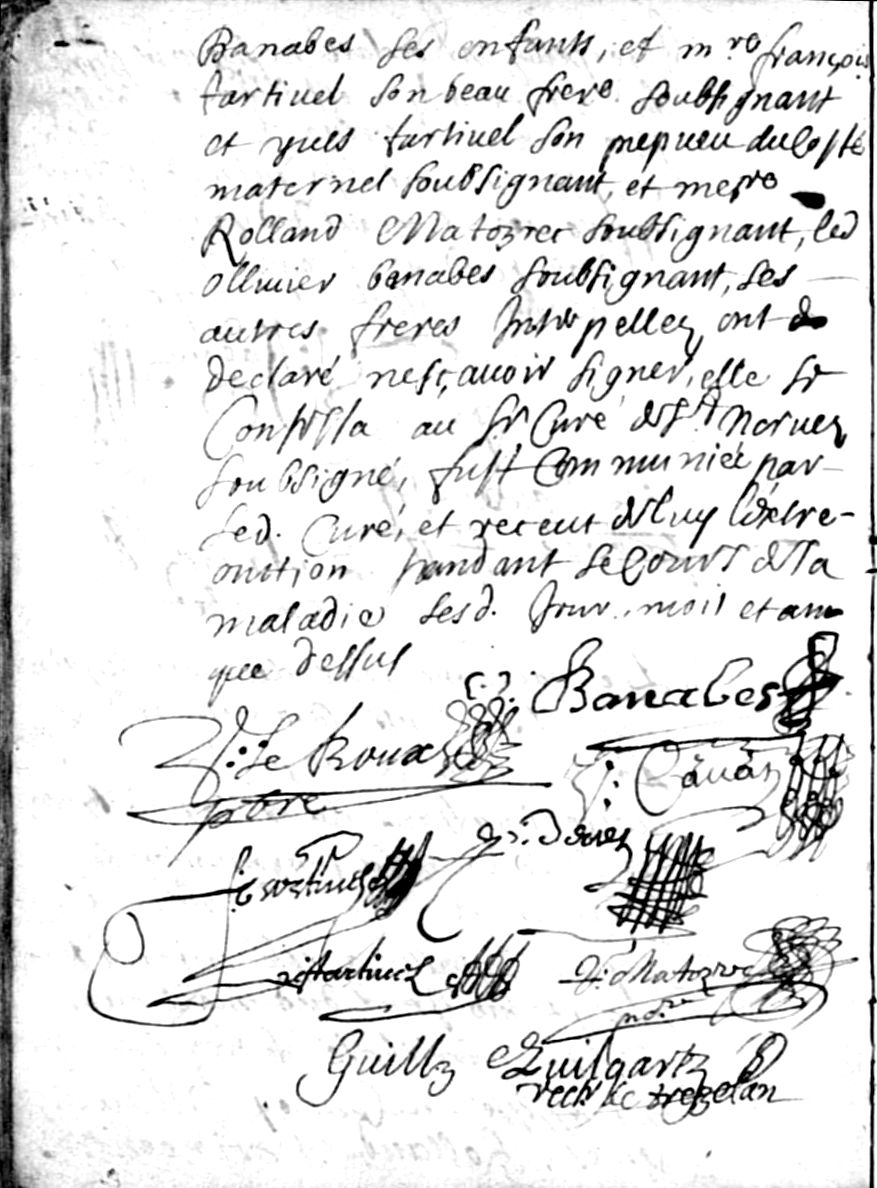 Banabes ses enfants, et m.re françois
tartivel son beau frere soubsignant
et yves tartivel son nepveu du costé
maternel soubsignant, et messre
Rolland Matozrec soubsignant, led
ollivier banabes soubsignant, ses
autres freres Interpellez ont
declaré nesçavoir signer, elle se
Confessa au sr Curé de st Norvez
soubsigné, fust Communiée par
led. Curé, et receut de luy lextre-
onction pandant le Cours de sa
maladie lesd. Jour, mois et an
que dessus
Banabes
Le Roux
pbre
tartivel
tartivel
Matozrec
Guill
rectr de tregzelan